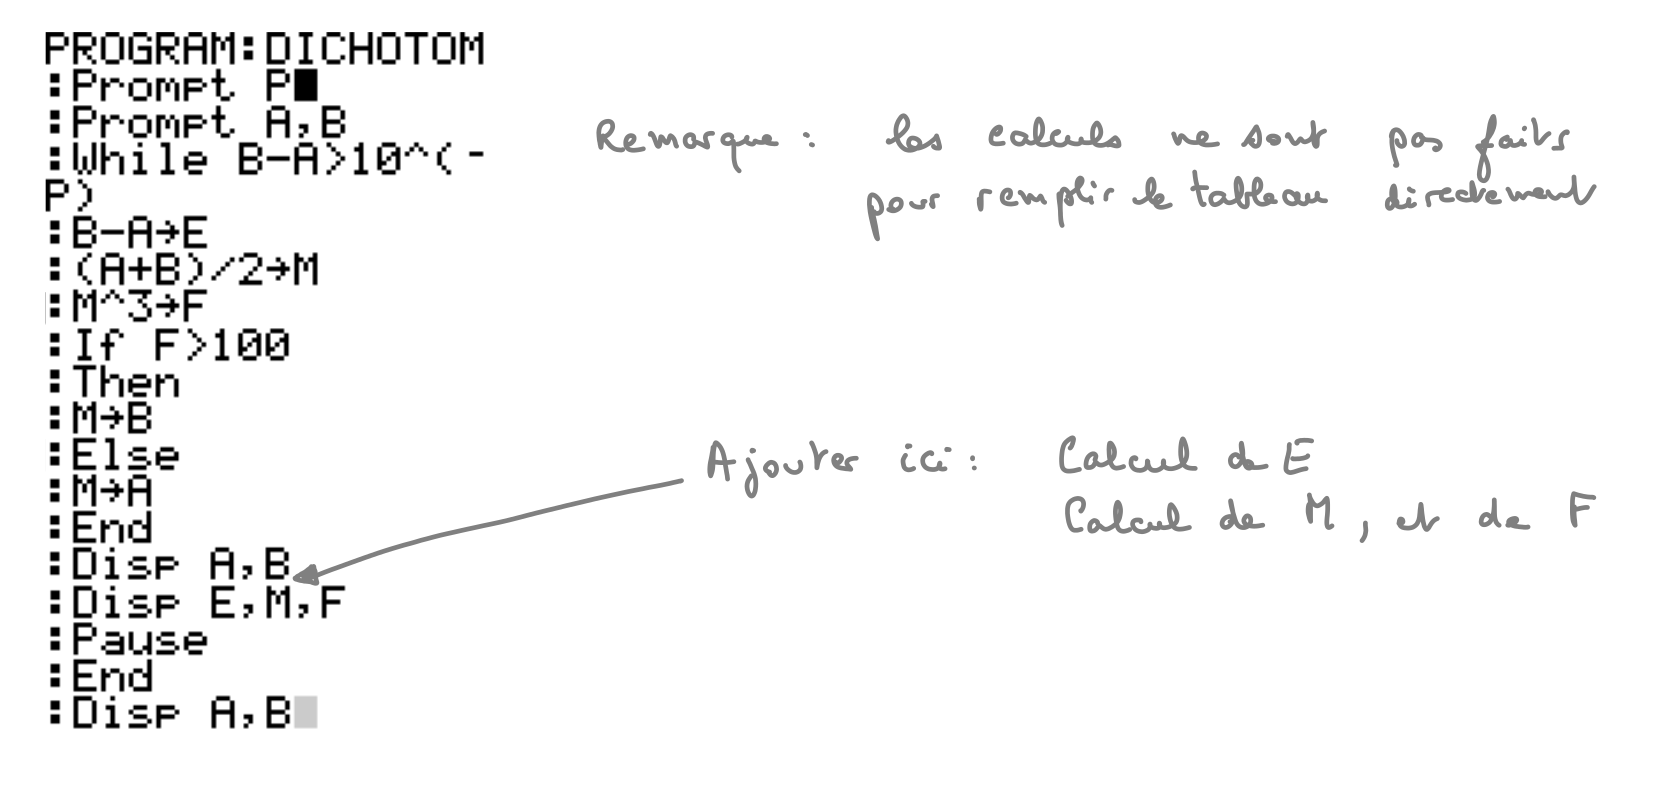 PROGRAM:DICHOTOM
:Prompt P
:Prompt A,B
:While B-A>10^(-
P)
:B-A→E
:(A+B)/2→M
:M^3→F
:If F>100
:Then
:M→B
:Else
:M→A
:End
:Disp A,B
:Disp E,M,F
:Pause
:End
:Disp A,B
Remarque : les calculs ne sont pas faits
pour remplir le tableau directement
Ajouter ici : Calcul de E
Calcul de M, et de F